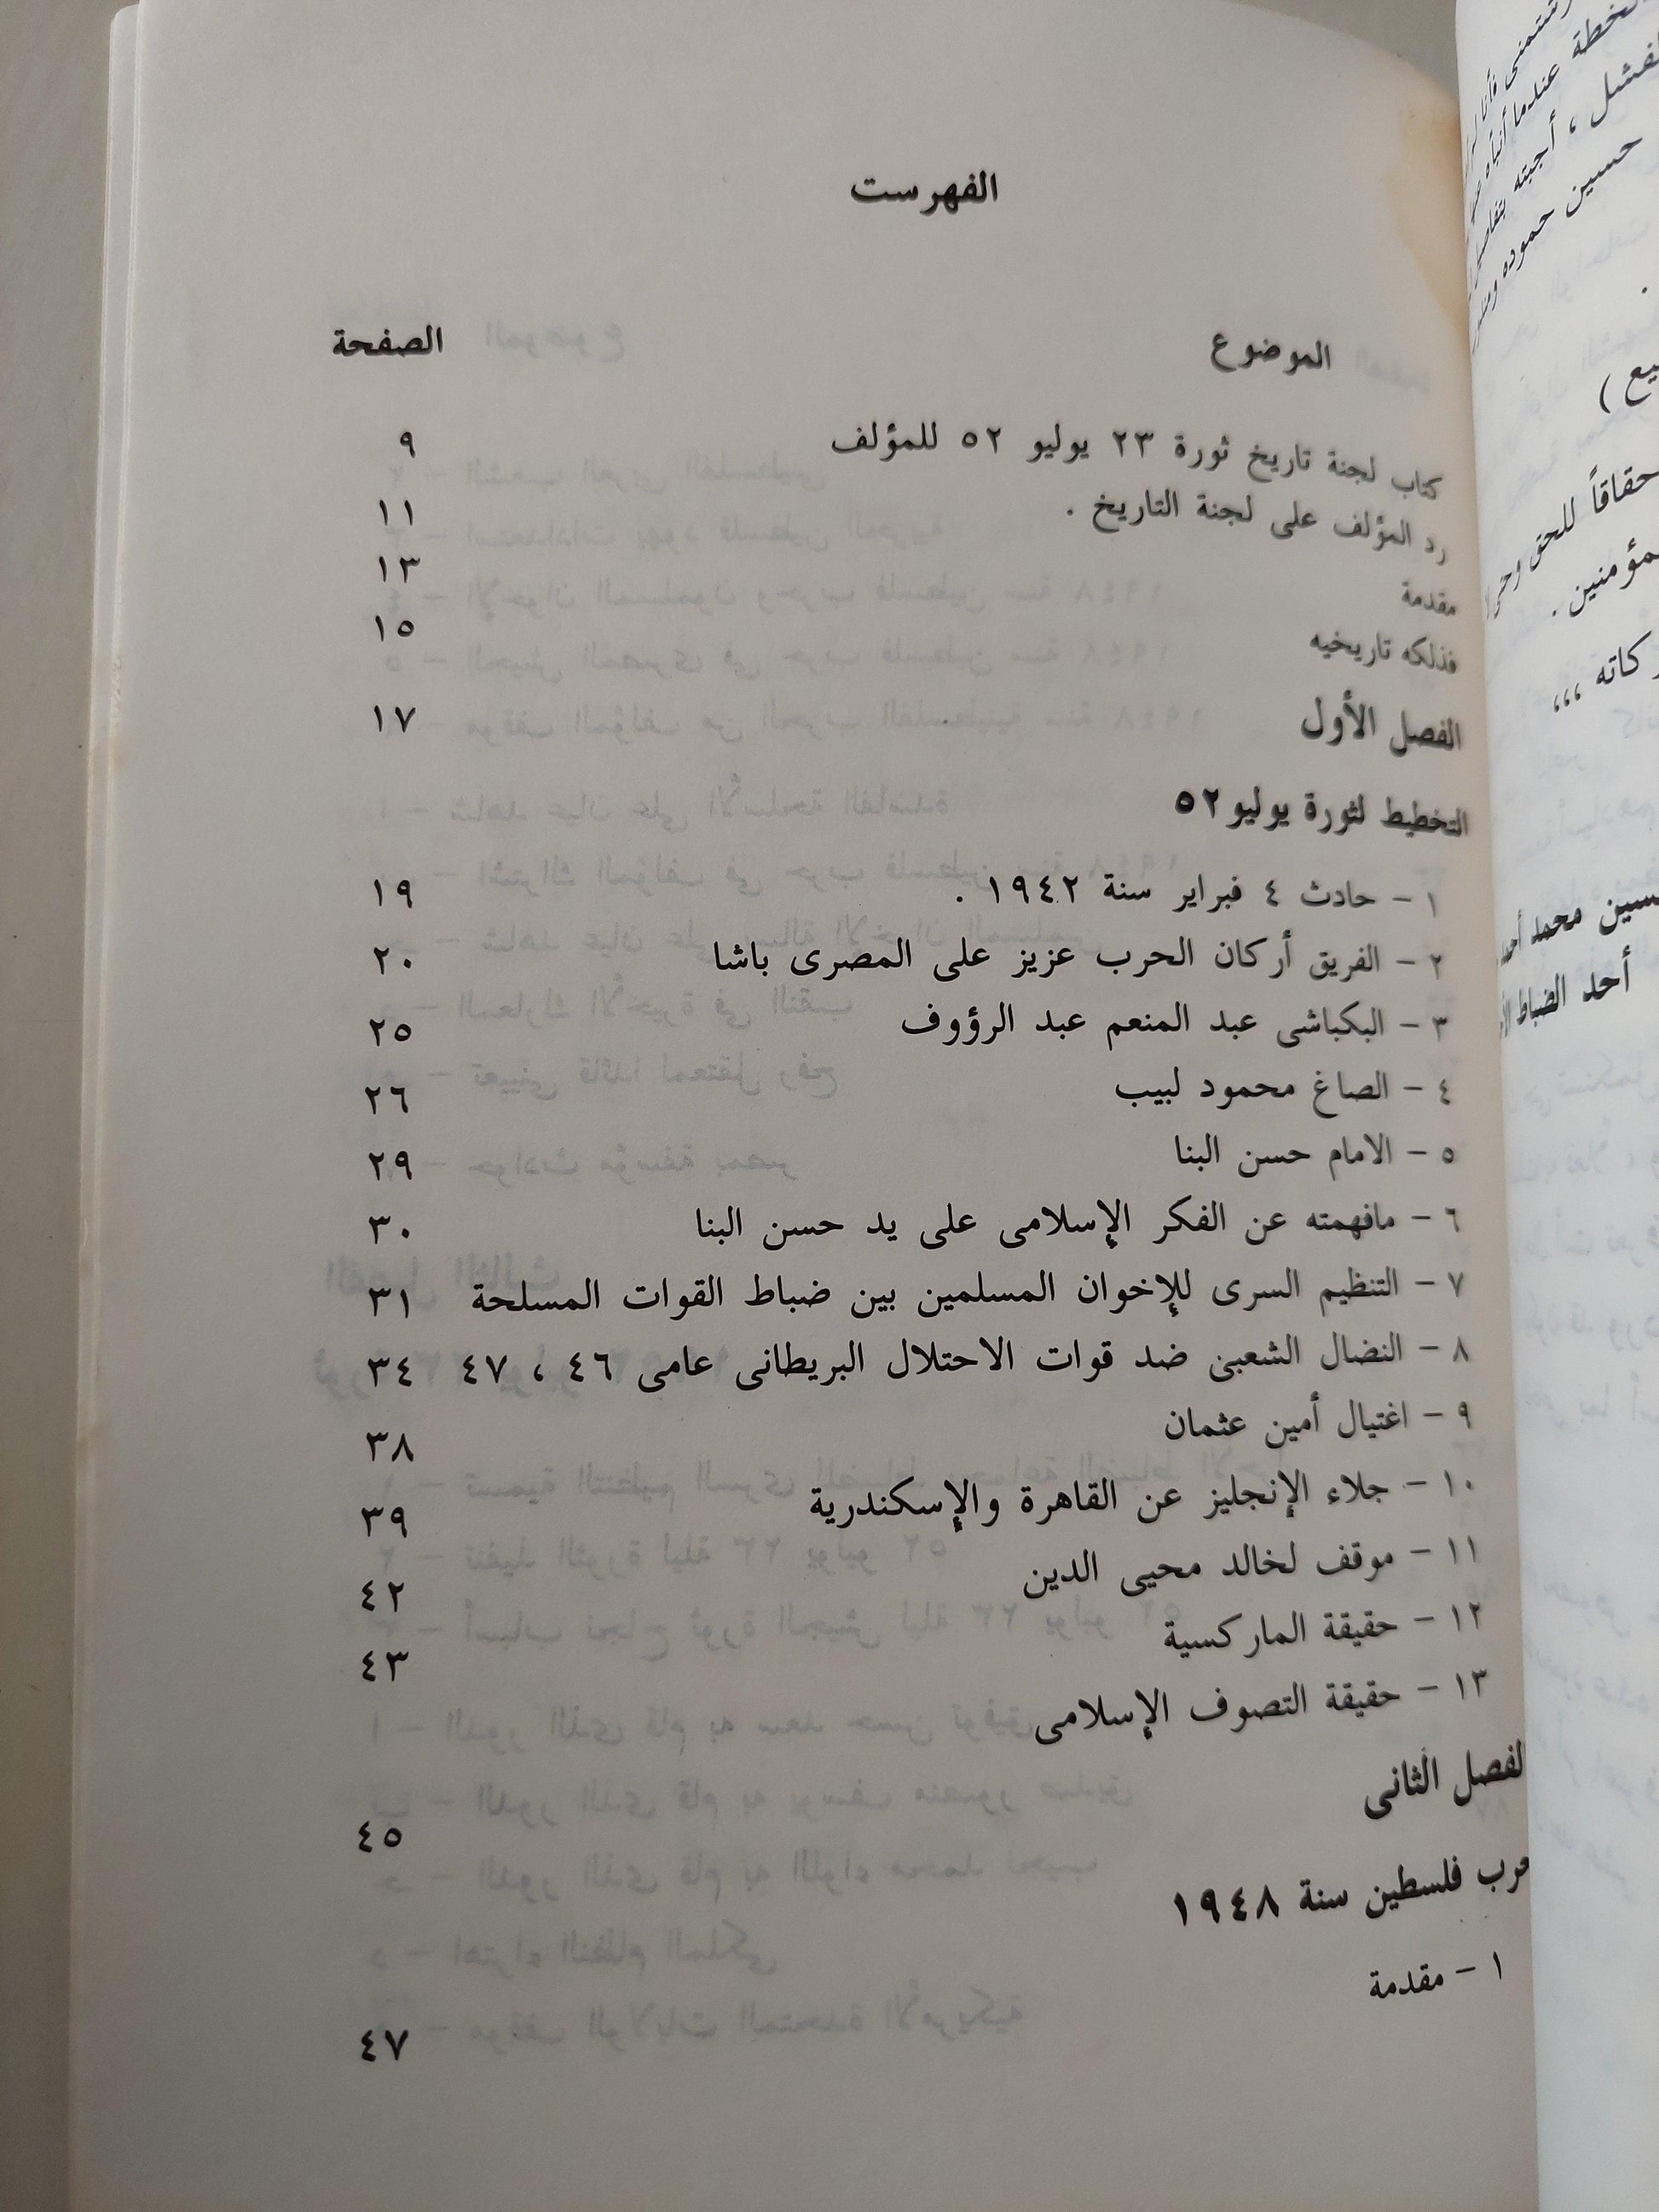 الفهرست
الموضوع الصفحة
كتاب لجنة تاريخ ثورة ٢٣ يوليو ٥٢ للمؤلف ٩
رد المؤلف على لجنة التاريخ . ١١
مقدمة ١٣
فذلكه تاريخيه ١٥
الفصل الأول ١٧
التخطيط لثورة يوليو ٥٢
١ - حادث ٤ فبراير سنة ١٩٤٢ . ١٩
٢ - الفريق أركان الحرب عزيز على المصرى باشا ٢٠
٣ - البكباشى عبد المنعم عبد الرؤوف ٢٥
٤ - الصاغ محمود لبيب ٢٦
٥ - الامام حسن البنا ٢٩
٦ - مافهمته عن الفكر الإسلامى على يد حسن البنا ٣٠
٧ - التنظيم السرى للإخوان المسلمين بين ضباط القوات المسلحة ٣١
٨ - النضال الشعبى ضد قوات الاحتلال البريطانى عامى ٤٦ ، ٤٧ ٣٤
٩ - اغتيال أمين عثمان ٣٨
١٠ - جلاء الإنجليز عن القاهرة والإسكندرية ٣٩
١١ - موقف لخالد محيى الدين ٤٢
١٢ - حقيقة الماركسية ٤٣
١٣ - حقيقة التصوف الإسلامى
لفصل الثانى ٤٥
حرب فلسطين سنة ١٩٤٨
١ - مقدمة ٤٧
لخطة عندما أنبأه
لفشل ، أجبته
حسين حموده
حقاقاً للحق
مؤمنين .
كاته ،،،
سين محمد
أحد الضباط